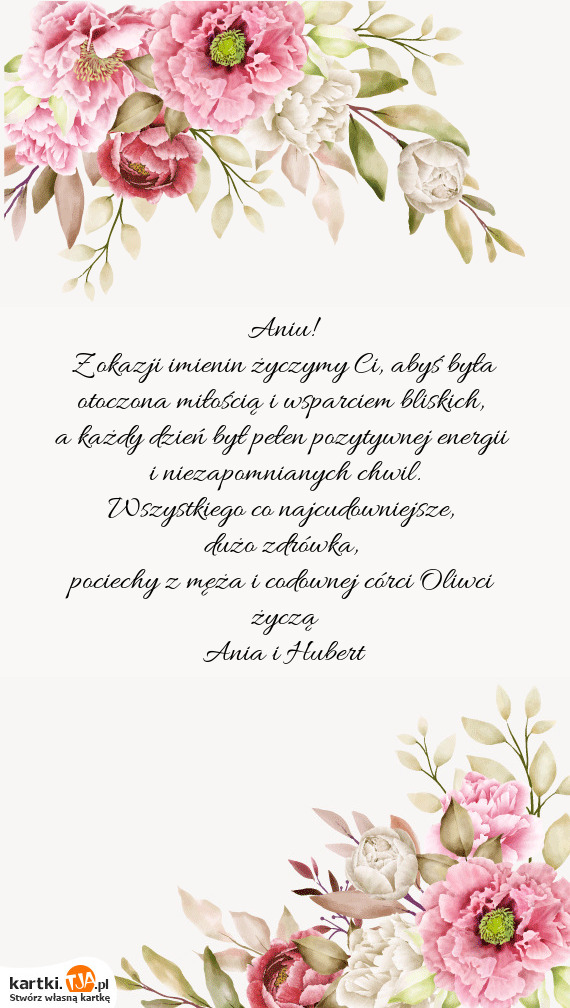 Aniu!
Z okazji imienin życzymy Ci, abyś była
otoczona miłością i wsparciem bliskich,
a każdy dzień był pełen pozytywnej energii
i niezapomnianych chwil.
Wszystkiego co najcudowniejsze,
dużo zdrówka,
pociechy z męża i codownej córci Oliwci
życzą
Ania i Hubert
kartki.TJA.pl
Stwórz własną kartkę